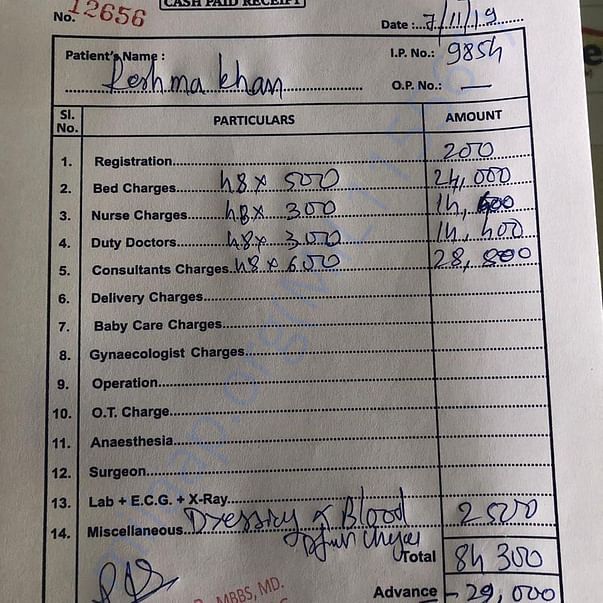 CASH PAID RECEIPT
No. 12656
Date : 7/11/19
Patient's Name : Reshma khan
I.P. No.: 9854
O.P. No.: —
Sl. No. PARTICULARS AMOUNT
1. Registration 200
2. Bed Charges 48 x 500 24,000
3. Nurse Charges 48 x 300 14,400
4. Duty Doctors 48 x 300 14,400
5. Consultants Charges 48 x 600 28,800
6. Delivery Charges
7. Baby Care Charges
8. Gynaecologist Charges
9. Operation
10. O.T. Charge
11. Anaesthesia
12. Surgeon
13. Lab + E.C.G. + X-Ray
14. Miscellaneous Dressing & Blood 2500
Total 84300
MBBS, MD.
Advance - 29,000